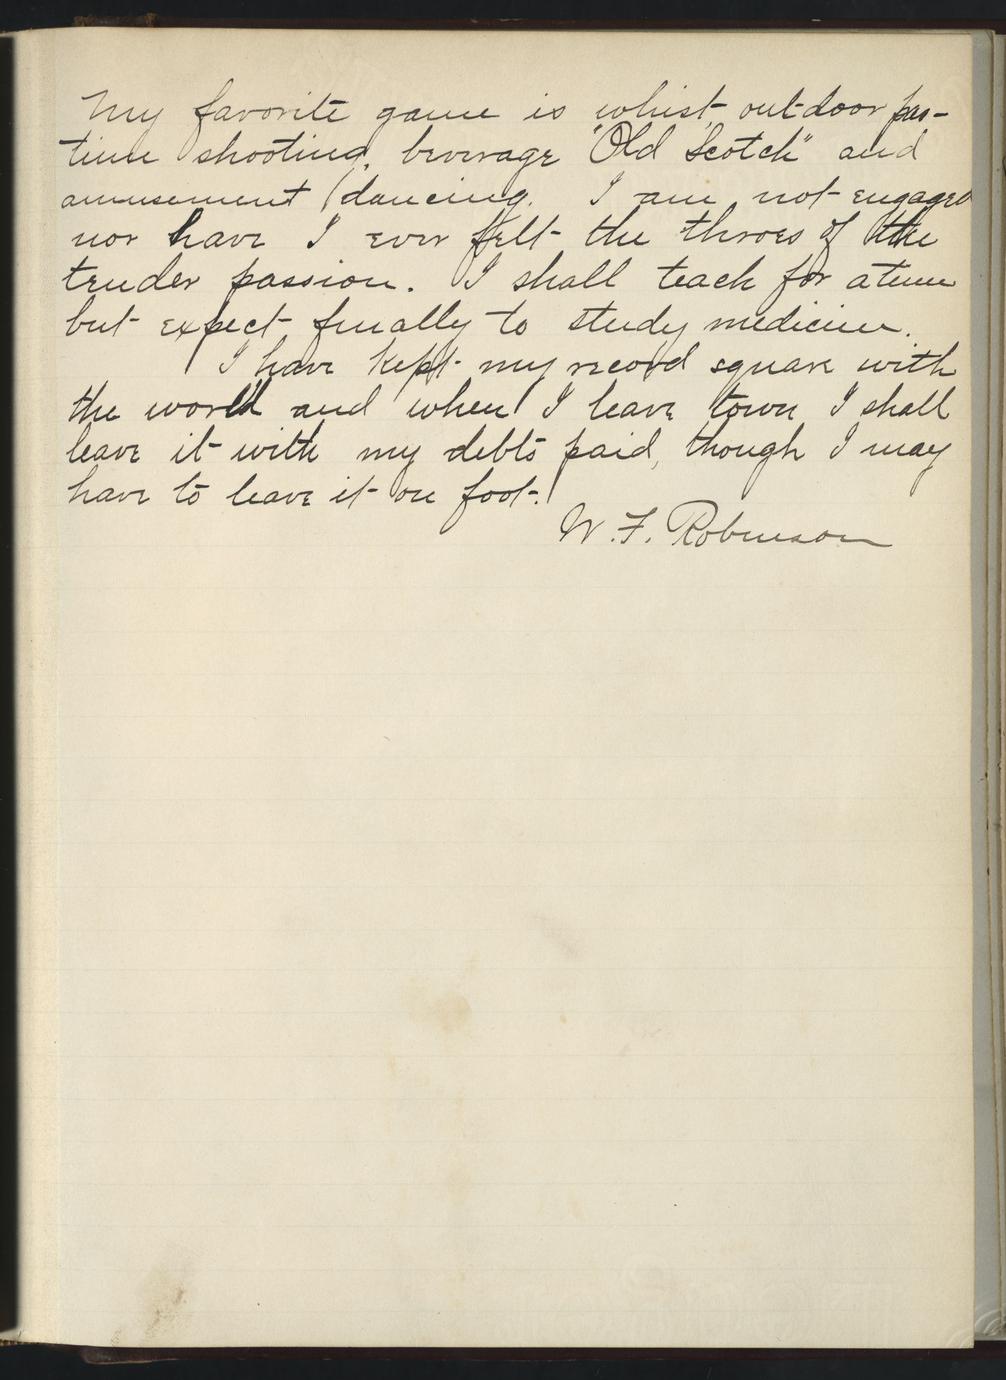 My favorite game is whist outdoor pas-
time shooting, beverage "Old Scotch" and
amusement dancing. I am not engaged
nor have I ever felt the throes of the
tender passion. I shall teach for a time
but expect finally to study medicine.
I have kept my record square with
the world and when I leave town I shall
leave it with my debts paid, though I may
have to leave it on foot.
W. F. Robinson